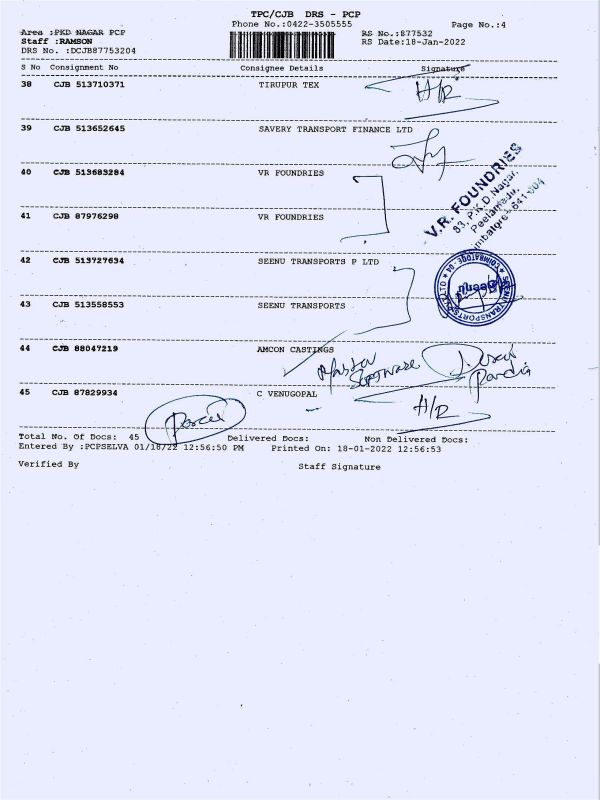 TPC/CJB DRS - PCP
Phone No.:0422-3505555 Page No.:4
Area :PKD NAGAR PCP RS No.:877532
Staff :RAMSON RS Date:18-Jan-2022
DRS No. :DCJB87753204
S No Consignment No Consignee Details Signature
38 CJB 513710371 TIRUPUR TEX H/R
39 CJB 513652645 SAVERY TRANSPORT FINANCE LTD
40 CJB 513683284 VR FOUNDRIES
V.R. FOUNDRIES
83, P.K.D. Nagar,
Peelamedu,
imbatore - 641 004
41 CJB 87976298 VR FOUNDRIES
42 CJB 513727634 SEENU TRANSPORTS P LTD
43 CJB 513558553 SEENU TRANSPORTS
44 CJB 88047219 AMCON CASTINGS
45 CJB 87829934 C VENUGOPAL H/R
Parcel
Total No. Of Docs: 45 Delivered Docs: Non Delivered Docs:
Entered By :PCPSELVA 01/18/22 12:56:50 PM Printed On: 18-01-2022 12:56:53
Verified By Staff Signature